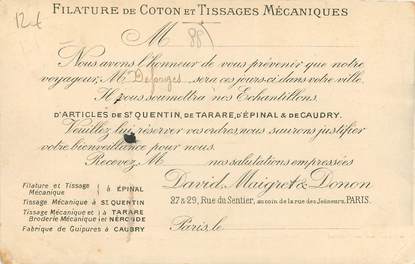 FILATURE DE COTON ET TISSAGES MÉCANIQUES
12f
M 88
Nous avons l'honneur de vous prévenir que notre
voyageur, M. Deforges sera ces jours-ci dans votre ville.
Il vous soumettra nos Echantillons.
D'ARTICLES DE ST QUENTIN, DE TARARE, D'ÉPINAL & DE CAUDRY.
Veuillez lui réserver vos ordres, nous saurons justifier
votre bienveillance pour nous.
Recevez, M nos salutations empressées
David, Maigret & Donon
27 & 29, Rue du Sentier, au coin de la rue des Jeûneurs, PARIS.
Filature et Tissage Mécanique } à ÉPINAL
Tissage Mécanique à ST QUENTIN
Tissage Mécanique et } à TARARE
Broderie Mécanique } et NÉRONDE
Fabrique de Guipures à CAUDRY
Paris, le